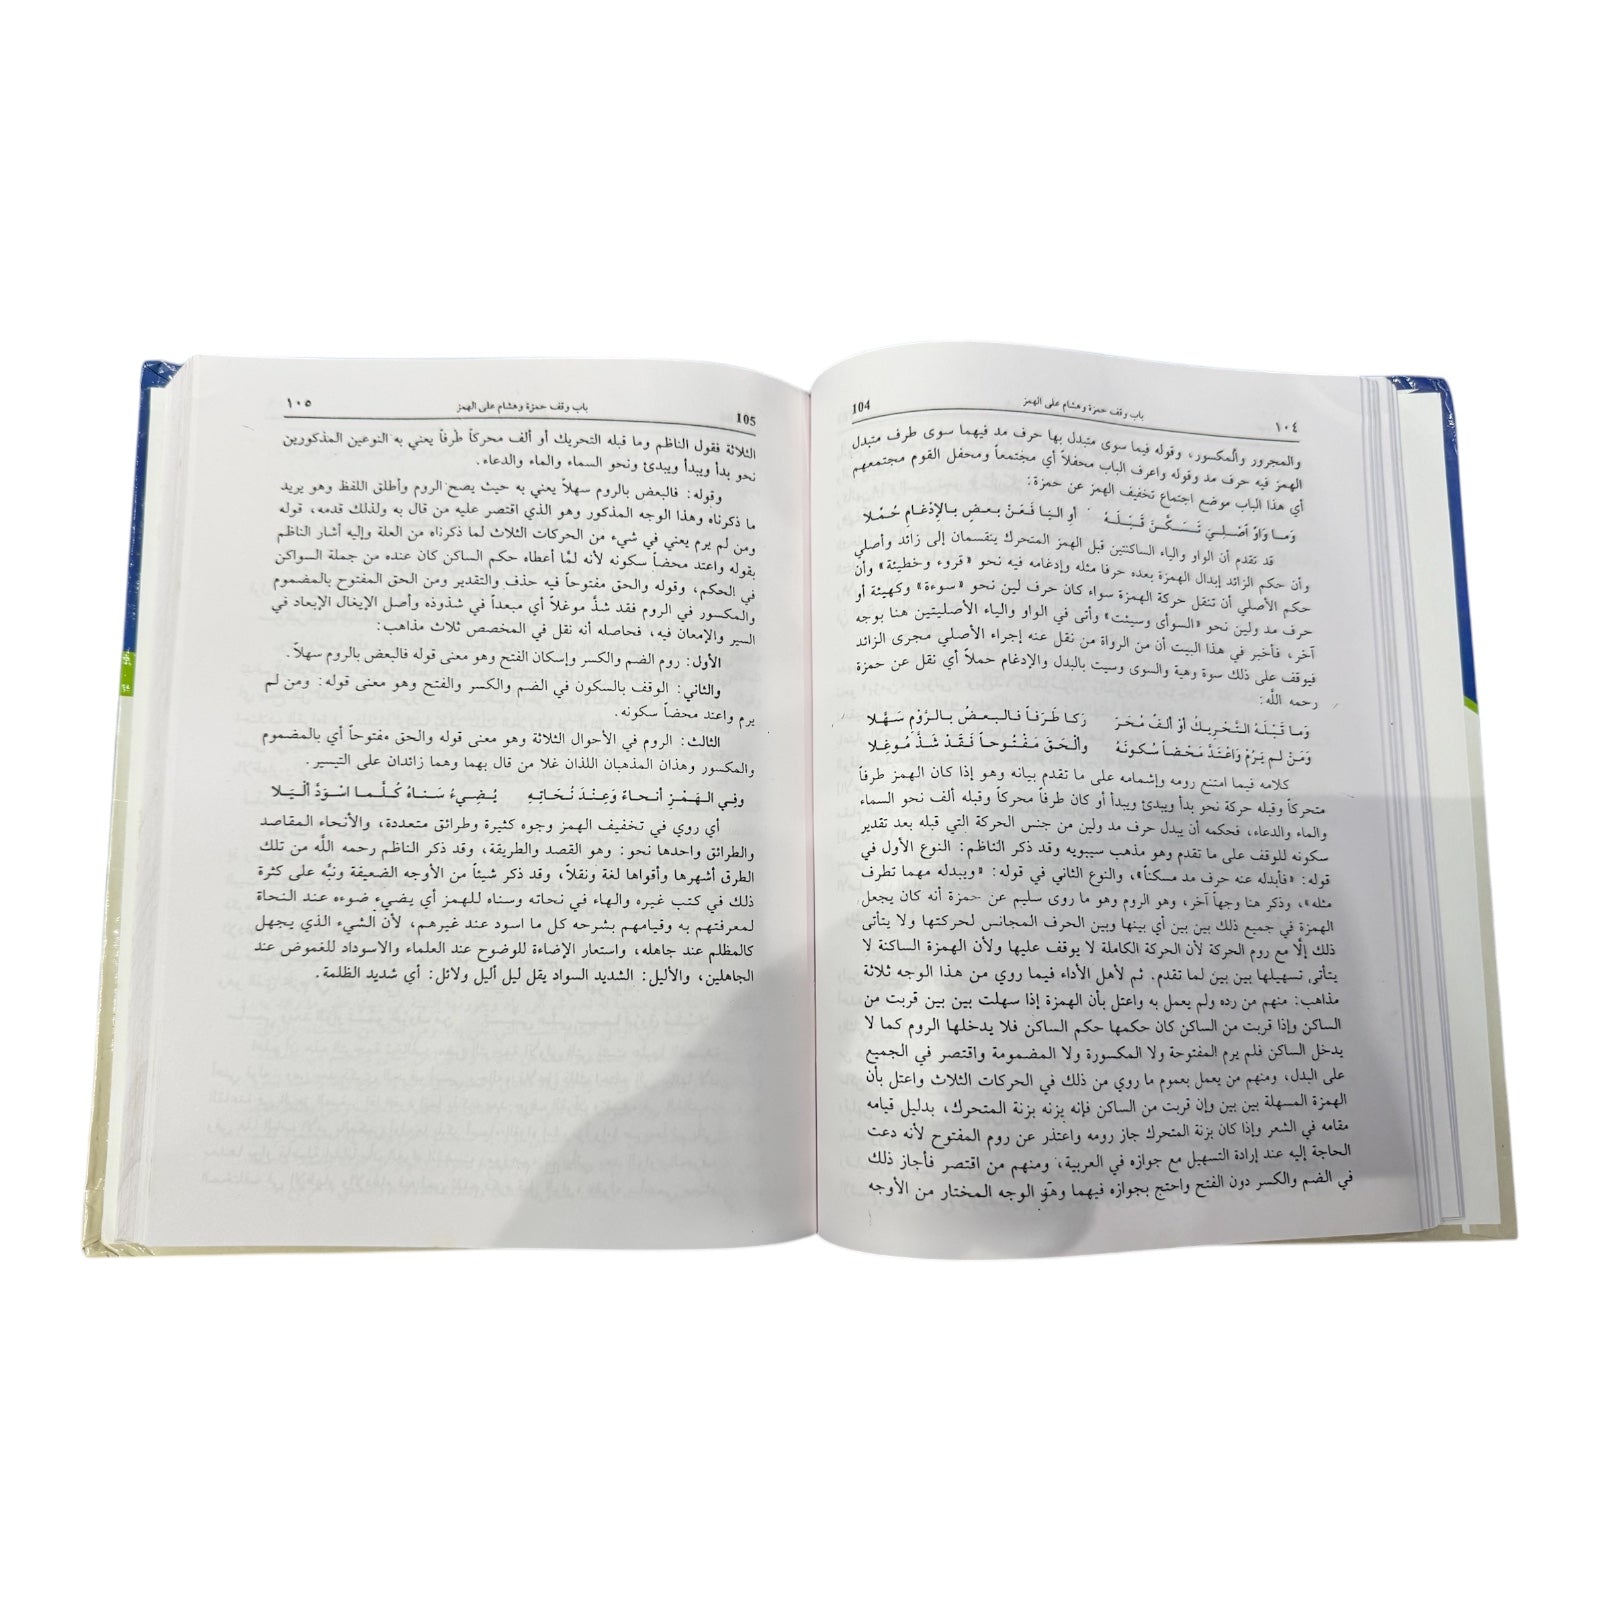 ١٠٤ باب وقف حمزة وهشام على الهمز 104
والمجرور والمكسور، وقوله فيما سوى متبدل بها حرف مد فيهما سوى طرف متبدل
الهمز فيه حرف مد وقوله واعرف الباب محفلاً أي مجتمعاً ومحفل القوم مجتمعهم
أي هذا الباب موضع اجتماع تخفيف الهمز عن حمزة:
وَمَا وَاوٌ اصْلِيّ تَسَكَّنَ قَبْلَهُ أوِ اليَا فَعَنْ بعضٍ بالإدْغامِ حُمِّلا
قد تقدم أن الواو والياء الساكنتين قبل الهمز المتحرك ينقسمان إلى زائد وأصلي
وأن حكم الزائد إبدال الهمزة بعده حرفا مثله وإدغامه فيه نحو «قروء وخطيئة» وأن
حكم الأصلي أن تنقل حركة الهمزة سواء كان حرف لين نحو «سوءة» وكهيئة أو
حرف مد ولين نحو «السوأى وسيئت» وأتى في الواو والياء الأصليتين هنا بوجه
آخر، فأخبر في هذا البيت أن من الرواة من نقل عنه إجراء الأصلي مجرى الزائد
فيوقف على ذلك سوة وهية والسوى وسيت بالبدل والإدغام حملاً أي نقل عن حمزة
رحمه اللَّه:
وَمَا قَبْلَهُ التَّحْرِيكُ أوْ ألفٌ مُحَرَّ رَكا طَرَفاً فالبعضُ بالرَّوْمِ سَهَّلا
وَمَنْ لم يَرُمْ وَاعْتَدَّ مَحْضاً سُكونَهُ وألْحَقَ مَفْتُوحاً فَقَدْ شَذَّ مُوغِلا
كلامه فيما امتنع رومه وإشمامه على ما تقدم بيانه وهو إذا كان الهمز طرفاً
متحركاً وقبله حركة نحو بدأ ويبدئ ويبدأ أو كان طرفاً محركاً وقبله ألف نحو السماء
والماء والدعاء، فحكمه أن يبدل حرف مد ولين من جنس الحركة التي قبله بعد تقدير
سكونه للوقف على ما تقدم وهو مذهب سيبويه وقد ذكر الناظم: النوع الأول في
قوله: «فأبدله عنه حرف مد مسكناً»، والنوع الثاني في قوله: «ويبدله مهما تطرف
مثله»، وذكر هنا وجهاً آخر، وهو الروم وهو ما روى سليم عن حمزة أنه كان يجعل
الهمزة في جميع ذلك بين بين أي بينها وبين الحرف المجانس لحركتها ولا يتأتى
ذلك إلَّا مع روم الحركة لأن الحركة الكاملة لا يوقف عليها ولأن الهمزة الساكنة لا
يتأتى تسهيلها بين بين لما تقدم. ثم لأهل الأداء فيما روي من هذا الوجه ثلاثة
مذاهب: منهم من رده ولم يعمل به واعتل بأن الهمزة إذا سهلت بين بين قربت من
الساكن وإذا قربت من الساكن كان حكمها حكم الساكن فلا يدخلها الروم كما لا
يدخل الساكن فلم يرم المفتوحة ولا المكسورة ولا المضمومة واقتصر في الجميع
على البدل، ومنهم من يعمل بعموم ما روي من ذلك في الحركات الثلاث واعتل بأن
الهمزة المسهلة بين بين وإن قربت من الساكن فإنه يزنه بزنة المتحرك، بدليل قيامه
مقامه في الشعر وإذا كان بزنة المتحرك جاز رومه واعتذر عن روم المفتوح لأنه دعت
الحاجة إليه عند إرادة التسهيل مع جوازه في العربية، ومنهم من اقتصر فأجاز ذلك
في الضم والكسر دون الفتح واحتج بجوازه فيهما وهو الوجه المختار من الأوجه
١٠٥ باب وقف حمزة وهشام على الهمز 105
الثلاثة فقول الناظم وما قبله التحريك أو ألف محركاً طرفاً يعني به النوعين المذكورين
نحو بدأ ويبدأ ويبدئ ونحو السماء والماء والدعاء.
وقوله: فالبعض بالروم سهلاً يعني به حيث يصح الروم وأطلق اللفظ وهو يريد
ما ذكرناه وهذا الوجه المذكور وهو الذي اقتصر عليه من قال به ولذلك قدمه، قوله
ومن لم يرم يعني في شيء من الحركات الثلاث لما ذكرناه من العلة وإليه أشار الناظم
بقوله واعتد محضاً سكونه لأنه لمَّا أعطاه حكم الساكن كان عنده من جملة السواكن
في الحكم، وقوله والحق مفتوحاً فيه حذف والتقدير ومن الحق المفتوح بالمضموم
والمكسور في الروم فقد شذَّ موغلاً أي مبعداً في شذوذه وأصل الإيغال الإبعاد في
السير والإمعان فيه، فحاصله أنه نقل في المخصص ثلاث مذاهب:
الأول: روم الضم والكسر وإسكان الفتح وهو معنى قوله فالبعض بالروم سهلاً.
والثاني: الوقف بالسكون في الضم والكسر والفتح وهو معنى قوله: ومن لم
يرم واعتد محضاً سكونه.
الثالث: الروم في الأحوال الثلاثة وهو معنى قوله والحق مفتوحاً أي بالمضموم
والمكسور وهذان المذهبان اللذان غلا من قال بهما وهما زائدان على التيسير.
وفِي الهَمْزِ أنحاءٌ وَعِنْدَ نُحَاتِهِ يُضِيءُ سَناهُ كُلَّما اسْوَدَّ ألْيَلا
أي روي في تخفيف الهمز وجوه كثيرة وطرائق متعددة، والأنحاء المقاصد
والطرائق واحدها نحو: وهو القصد والطريقة، وقد ذكر الناظم رحمه اللَّه من تلك
الطرق أشهرها وأقواها لغة ونقلاً، وقد ذكر شيئاً من الأوجه الضعيفة ونبَّه على كثرة
ذلك في كتب غيره والهاء في نحاته وسناه للهمز أي يضيء ضوءه عند النحاة
لمعرفتهم به وقيامهم بشرحه كل ما اسود عند غيرهم، لأن الشيء الذي يجهل
كالمظلم عند جاهله، واستعار الإضاءة للوضوح عند العلماء والاسوداد للغموض عند
الجاهلين، والأليل: الشديد السواد يقل ليل أليل ولائل: أي شديد الظلمة.